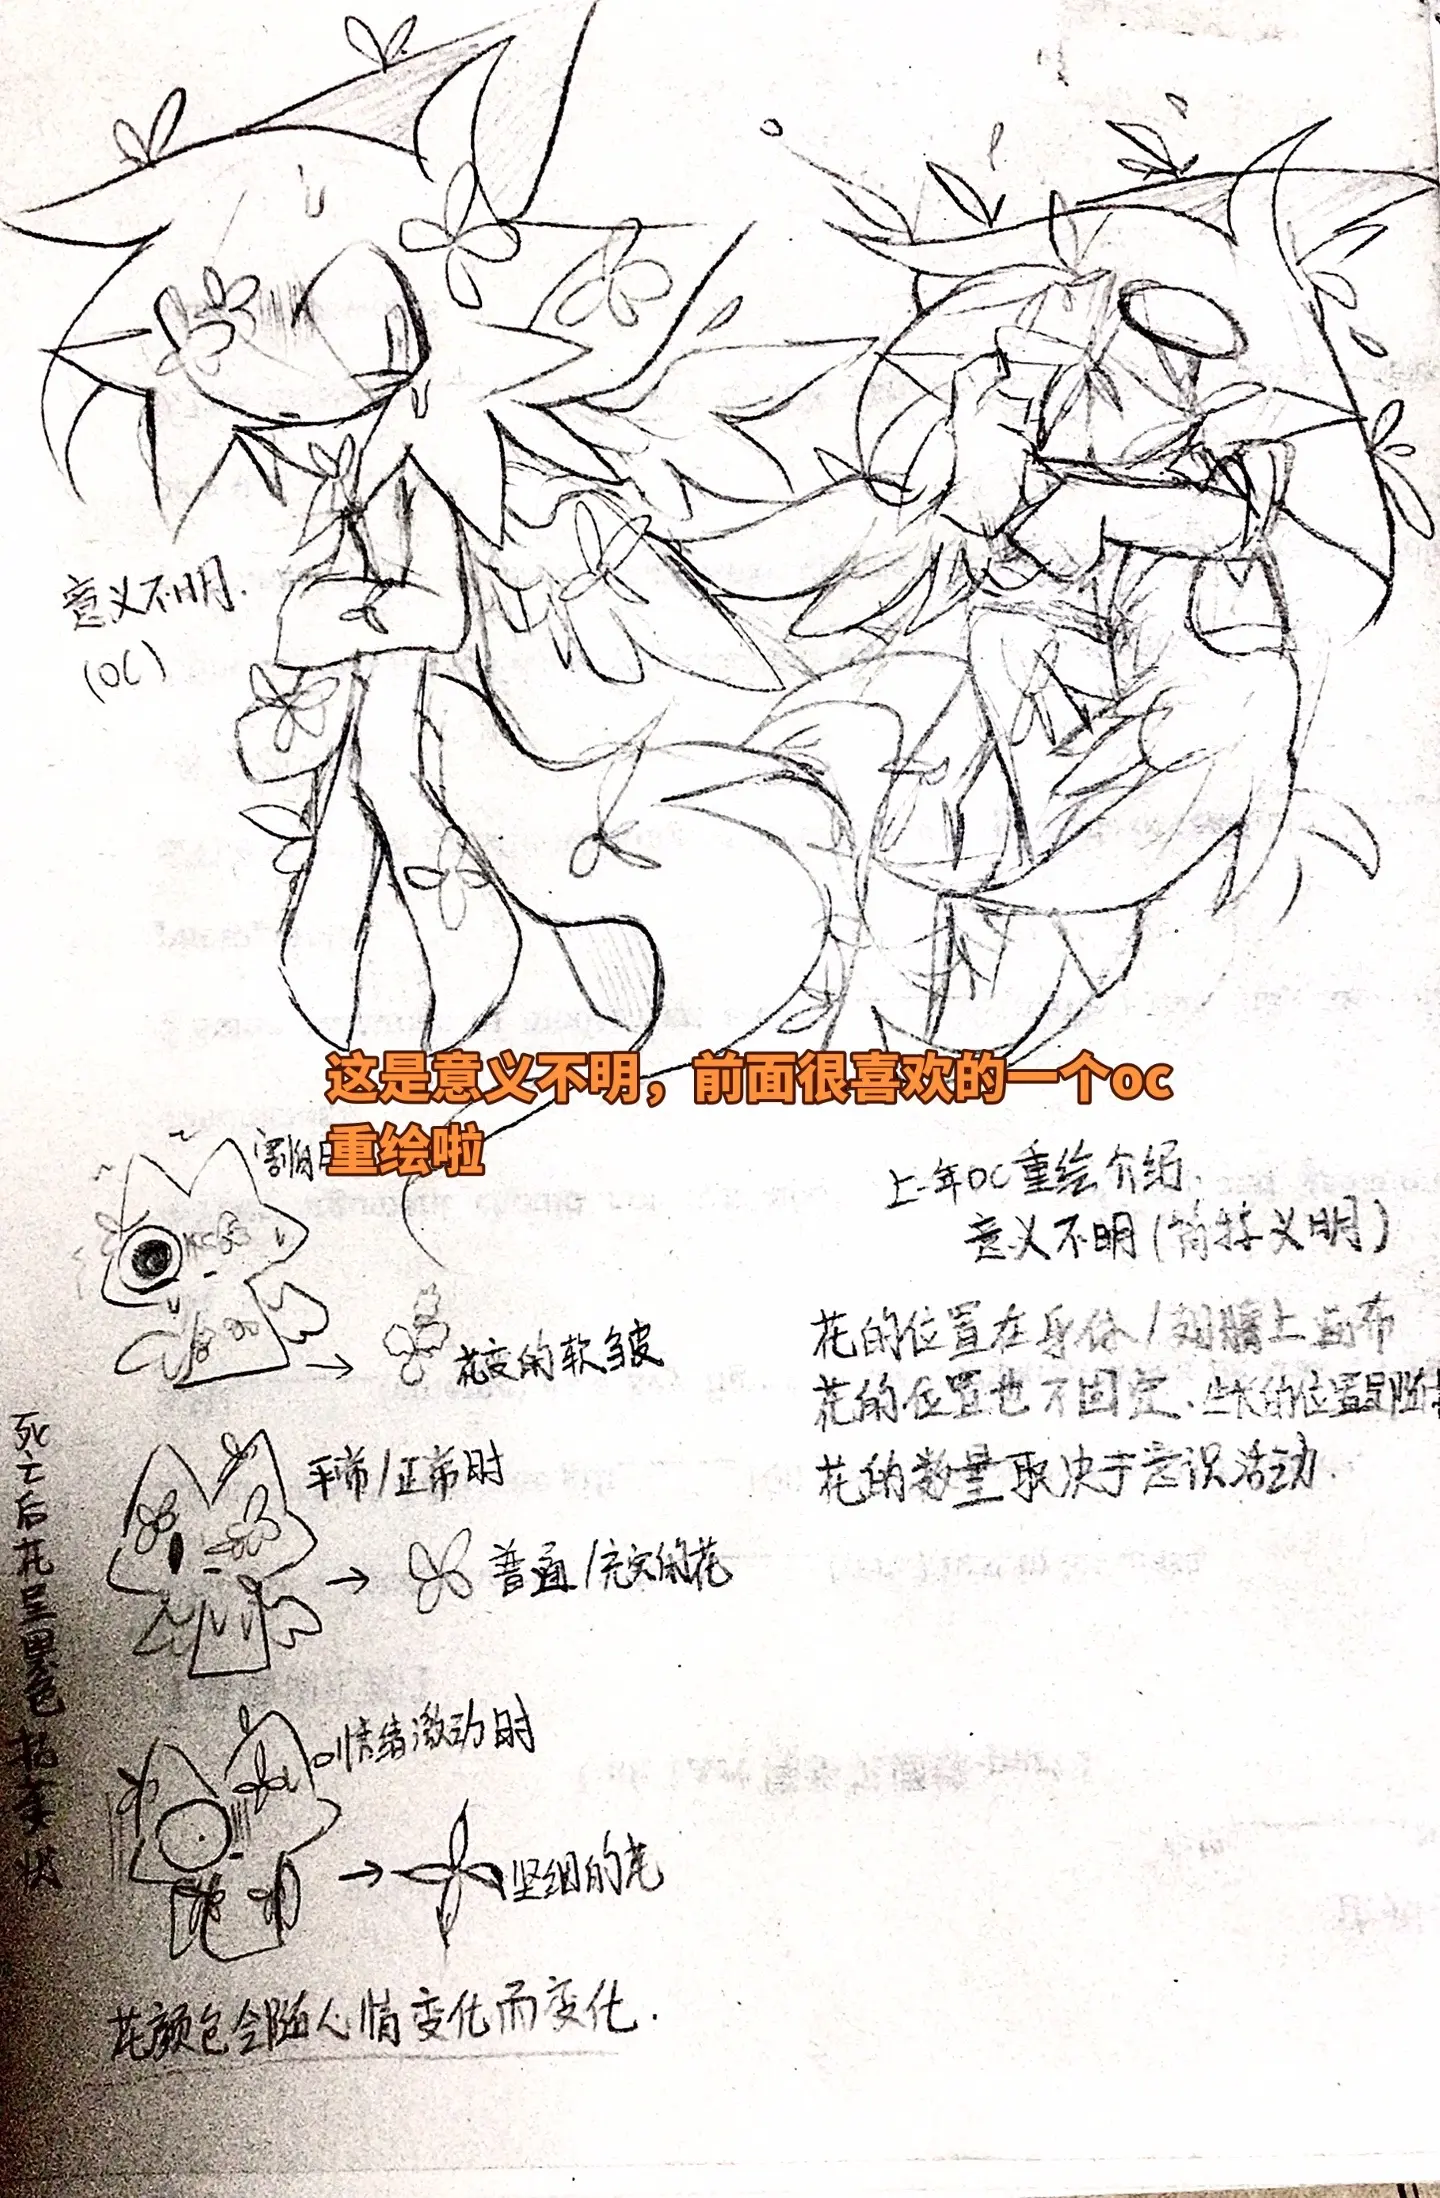 意义不明.
(OC)
这是意义不明，前面很喜欢的一个oc
重绘啦
害怕
上年OC重绘介绍
意义不明(简称义明)
花的位置在身体/翅膀上画布
花的位置也不固定.生长的位置
花的数量取决于意识活动.
花变的软皱
平常/正常时
普通/完实的花
情绪激动时
坚细的花
花颜色会随心情变化而变化.
死亡后花呈黑色枯萎状